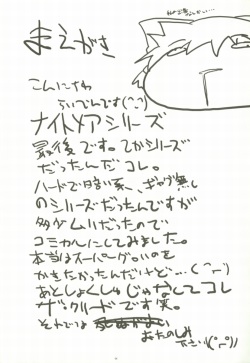 まえがき
こんにちわ
らいでんです(^^)
ナイトメアシリーズ
最後です。てかシリーズ
だったんだコレ。
ハードで暗い系、ギャグ無し
のシリーズだったんですが
多分ムリだったので
コミカルにしてみました。
本当はスーパーグロいのを
かきたかったんだけど…(^-^)
あとしょくしゅじゃなくてコレ
ザ・クリードです笑。
それでは
おたのしみ
下さい(^-^)ノ